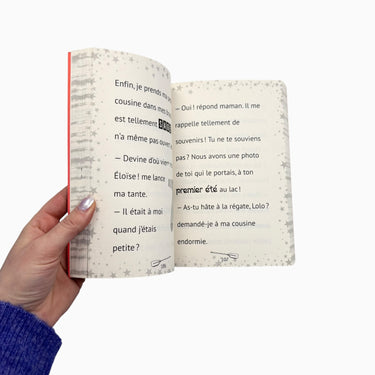 Enfin, je prends ma
cousine dans mes
est tellement
n'a même pas ouver
— Devine d'où vien
Éloïse! me lance
ma tante.
— Il était à moi
quand j'étais
petite?
— Oui! répond maman. Il me
rappelle tellement de
souvenirs! Tu ne te souviens
pas? Nous avons une photo
de toi qui le portais, à ton
premier été au lac!
— As-tu hâte à la régate, Lolo?
demandé-je à ma cousine
endormie.